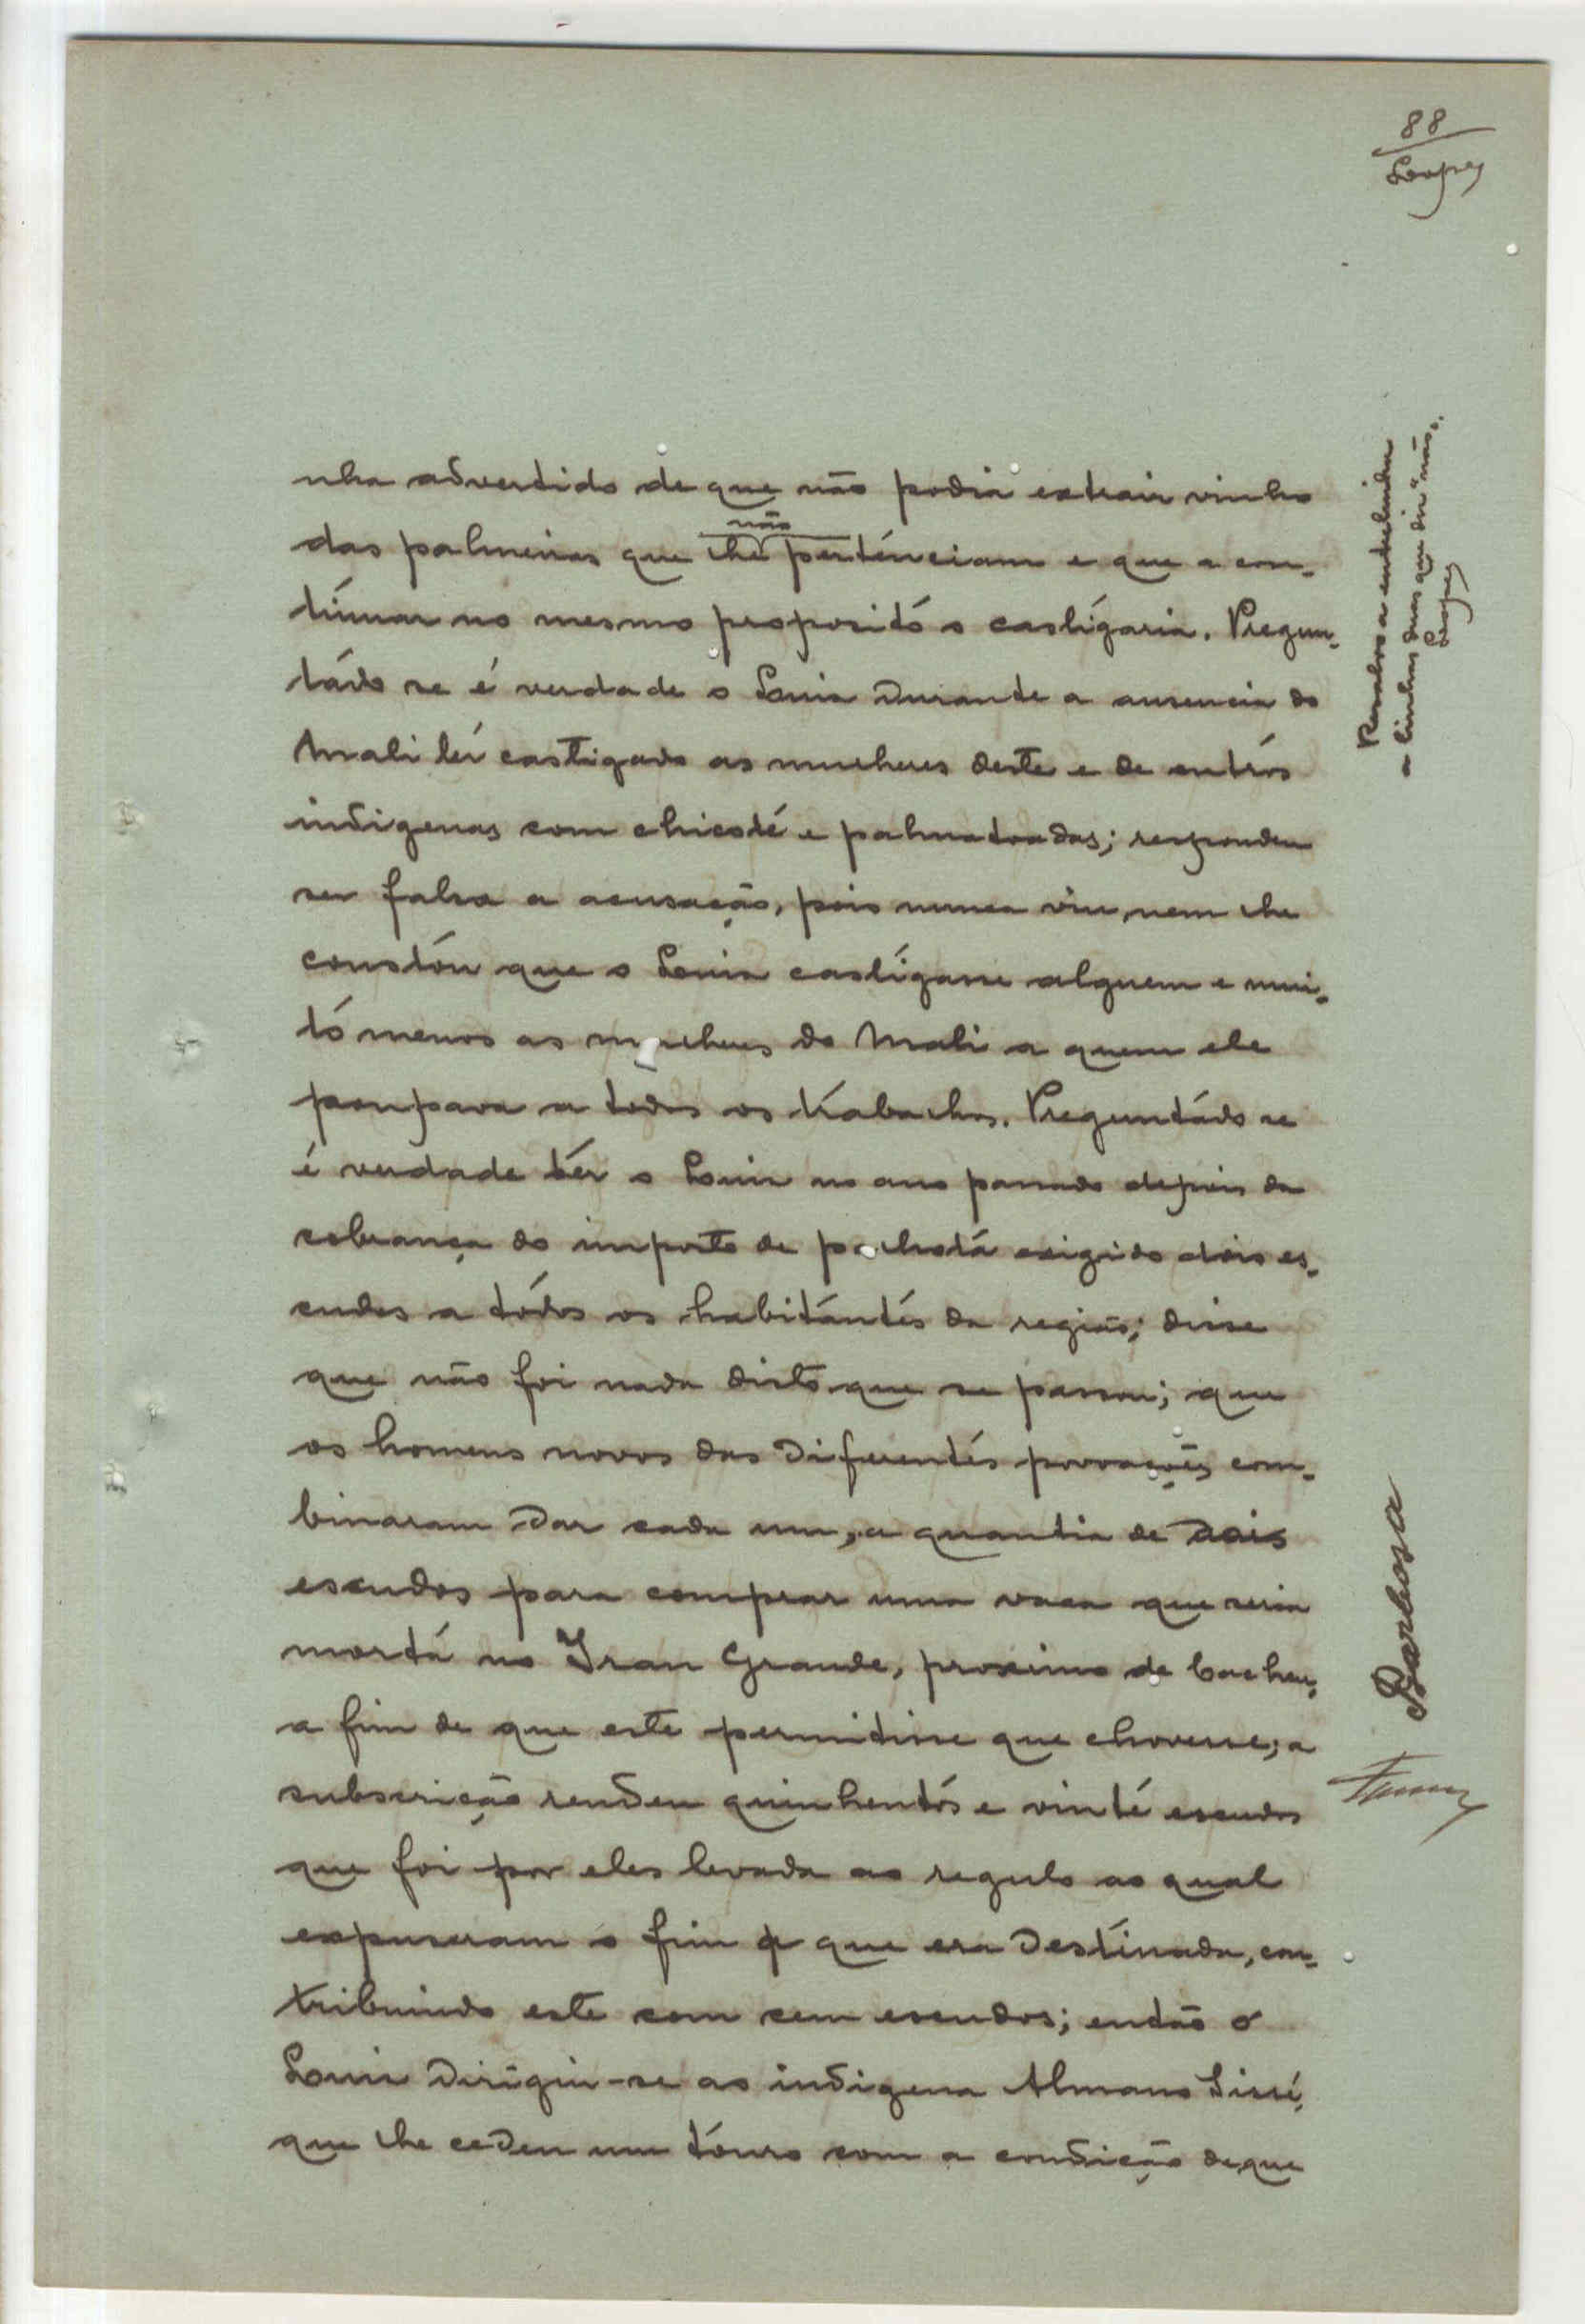 88
Lopes
nha advertido de que não podia extrair vinho
não
das palmeiras que lhe pertenciam e que a con-
tinuar no mesmo proposito o castigaria. Pregun-
tado se é verdade o Louis durante a ausencia do
Mali ter castigado as mulheres deste e de outros
indigenas com chicote e palmatoadas; respondeu
ser falsa a acusação, pois nunca viu, nem lhe
constou que o Louis castigasse alguem e mui-
to menos as mulheres do Mali a quem ele
poupava a todos os trabalhos. Preguntado se
é verdade ter o Louis no ano passado depois da
cobrança do imposto de palhota exigido dois es-
cudos a todos os habitantes da região; disse
que não foi nada disto que se passou; que
os homens novos das diferentes povoações com-
binaram dar cada um, a quantia de dois
escudos para comprar uma vaca que seria
morta no Iran Grande, proximo de Cacheu,
a fim de que este permitisse que chovesse; a
subscrição rendeu quinhentos e vinte escudos
que foi por eles levada ao regulo ao qual
expuseram o fim a que era destinada, con-
tribuindo este com cem escudos; então o
Louis dirigiu-se ao indigena Almano Sissé,
que lhe cedeu um touro com a condição de que
Resalvo a entrelinha
a linhas duas que diz "não".
Lopes
Barbosa